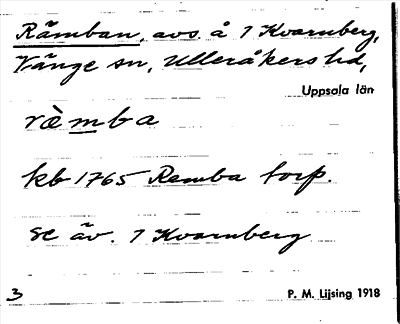 Råmban, avs. å 1 Kvarnberg,
Vänge sn, Ulleråkers hd,
Uppsala län
ràmba
kb 1765 Remba torp.
se äv. 1 Kvarnberg
3 P. M. Lijsing 1918